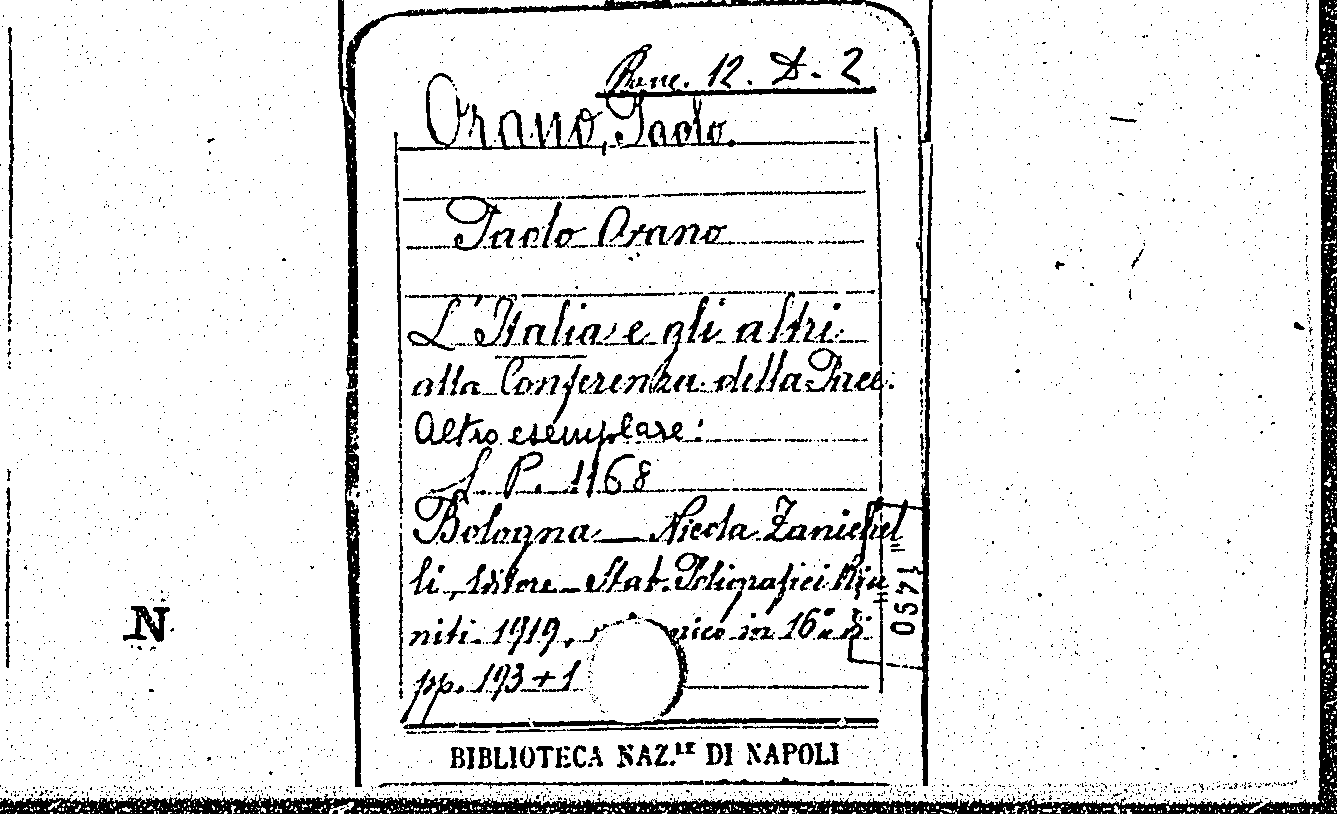 Banc. 12. D. 2
Orano, Paolo.
Paolo Orano
L'Italia e gli altri
alla Conferenza della Pace.
Altro esemplare:
S. P. 1168
Bologna — Nicola Zanichel
li, Editore — Stab. Poligrafici Riu
niti. 1919, in 16° di
pp. 193+1
BIBLIOTECA NAZ.LE DI NAPOLI
N